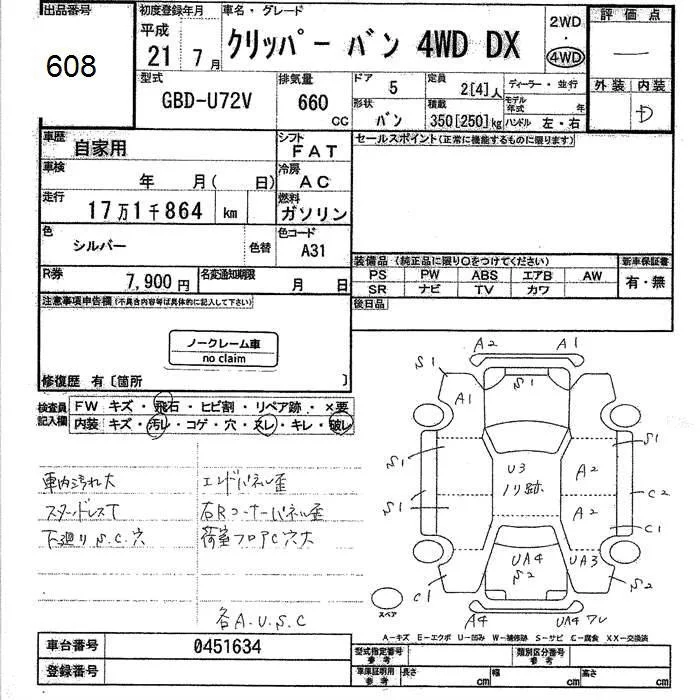 出品番号
608
初度登録年月
平成 21年 7月
車名・グレード
クリッパー バン 4WD DX
2WD
・
4WD
評価点
―
外装 内装
D
型式
GBD-U72V
排気量
660 cc
ドア 5
定員 2[4]人
ディーラー・並行
形状 バン
積載 350[250]kg
モデル年式 年
ハンドル 左・右
車歴
自家用
シフト
FAT
セールスポイント(正常に機能するものに限ります)
車検
年 月( 日)
冷房
AC
走行
17万1千864 km
燃料
ガソリン
色
シルバー
色替
色コード
A31
装備品 (純正品に限り○をつけてください)
新車保証書
PS PW ABS エアB AW
有・無
SR ナビ TV カワ
R券
7,900円
名変通知期限
月 日
後日品
注意事項申告欄(不具合内容等は具体的に記入して下さい)
ノークレーム車
no claim
修復歴 有〔箇所 〕
検査員記入欄
FW キズ・飛石・ヒビ割・リペア跡・×要
内装 キズ・汚レ・コゲ・穴・スレ・キレ・破レ
車内汚れ大
エンドパネル歪
スタッドレスT
右Rコーナーパネル歪
下廻りS.C.穴
荷室フロアC穴大
各A.U.S.C
A2 A1
S1 S1
A1
S1 S1
U3 A2
ソリ跡
S1 C2
A2
S1 C1
UA4 UA3
S2
C1 S2
スペア
A4 UA4ワレ
A―キズ E―エクボ U―凹み W―補修跡 S―サビ C―腐食 XX―交換済
車台番号
0451634
型式指定番号
参考
類別区分番号
参考
登録番号
車庫証明用
参考
長さ cm
幅 cm
高さ cm